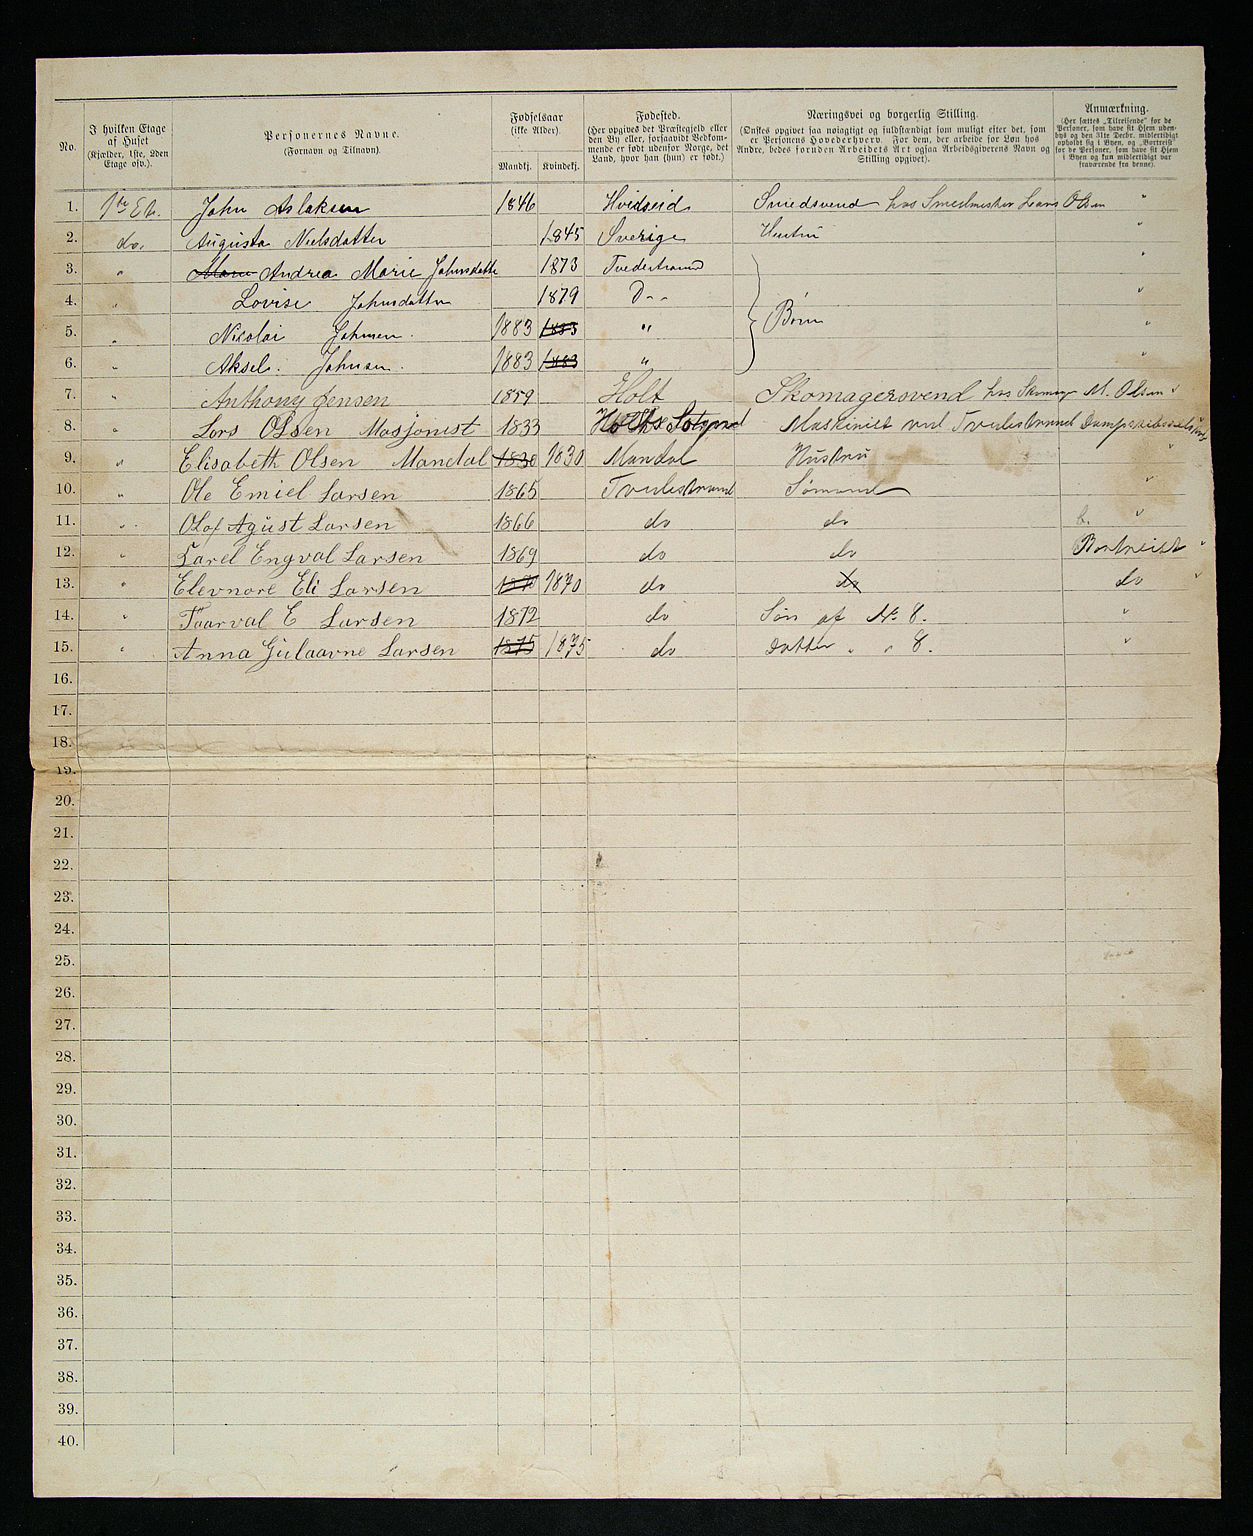 No.
I hvilken Etage af Huset (Kjælder, 1ste, 2den Etage osv.).
Personernes Navne. (Fornavn og Tilnavn).
Fødselsaar (ikke Alder).
Mandkj. Kvindekj.
Fødested. (Her opgives det Præstegjeld eller den By eller, forsaavidt Vedkommende er født udenfor Norge, det Land, hvor han (hun) er født.)
Næringsvei og borgerlig Stilling. (Ønskes opgivet saa nøiagtigt og fuldstændigt som muligt efter det, som er Personens Hovederhverv. For dem, der arbeide for Løn hos Andre, bedes foruden Arbeidets Art ogsaa Arbeidsgiverens Navn og Stilling opgivet).
Anmærkning. (Her sættes „Tilreisende" for de Personer, som have sit Hjem udenbys og den 31te Decbr. midlertidigt opholdt sig i Byen, og „Bortreist" for de Personer, som have sit Hjem i Byen og kun midlertidigt var fraværende fra denne).
1. 1ste Et. John Aslaksen 1846 Hvidseid Smedsvend hos Smedmester Lars Olsen "
2. do. Augusta Nielsdatter 1845 Sverige Hustru "
3. " Marie Andrea Marie Johnsdatter 1873 Tvedestrand "
4. " Lovise Johnsdatter 1879 Do "
5. " Nicolai Johnsen. 1883 1883 " Børn "
6. " Aksel. Johnsen. 1883 1883 " "
7. " Anthony Jensen 1859 Holt Skomagersvend hos M. Olsen "
8. " Lars Olsen Masjonist 1833 Holts Maskinist ved Tvedestrand
9. " Elisabeth Olsen Mandal 1830 1830 Mandal Hustru "
10. " Ole Emiel Larsen 1865 Tvedestrand Sømand "
11. " Olaf Agust Larsen 1866 do do b. "
12. " Karel Engval Larsen 1869 do do Bortreist "
13. " Elevnore Eli Larsen 1870 1870 do do do "
14. " Taarval E Larsen 1872 do Søn af No 8. "
15. " Anna Gulaavne Larsen 1875 1875 do datter " " 8. "
16.
17.
18.
19.
20.
21.
22.
23.
24.
25.
26.
27.
28.
29.
30.
31.
32.
33.
34.
35.
36.
37.
38.
39.
40.